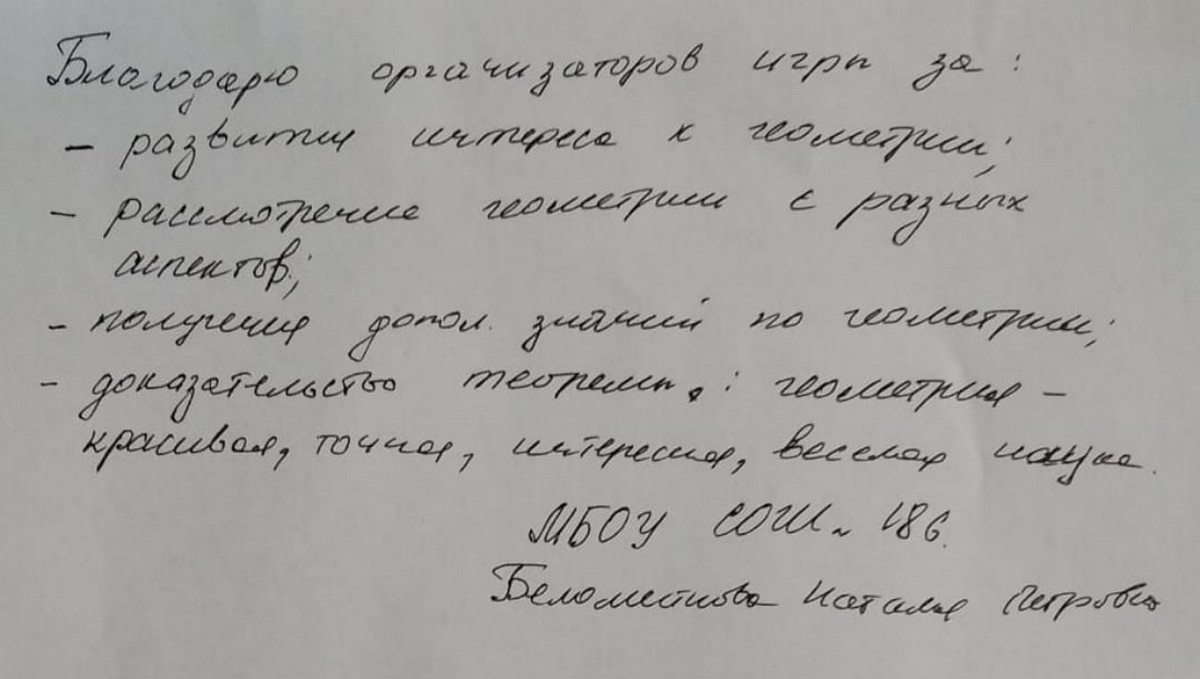 Благодарю организаторов игры за:
- развития интереса к геометрии;
- рассмотрение геометрии с разных
аспектов;
- получения допол. знаний по геометрии;
- доказательство теоремы: геометрия -
красивая, точная, интересная, веселая наука.
МБОУ СОШ 186.
Наталья Петровна